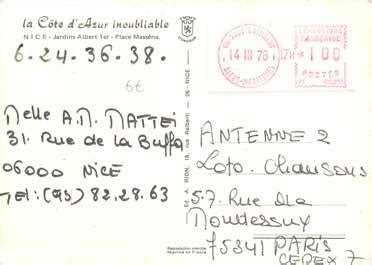 la Côte d'Azur inoubliable
NICE - Jardins Albert 1er - Place Masséna.
6.24.36.38.
6€
14 III 78
17H
RÉPUBLIQUE
FRANÇAISE
1,00
POSTES
ALPES-MARITIMES
Melle A.M. MATTEI
31. Rue de la Buffa
06000 NICE
Tel: (93) 82.28.63
Ed. A. RION, 18, rue Raiberti - 06 - NICE
Reproduction interdite
Imprimé en France
ANTENNE 2
Loto. Chansons
57. Rue de
75341 PARIS
CEDEX 7